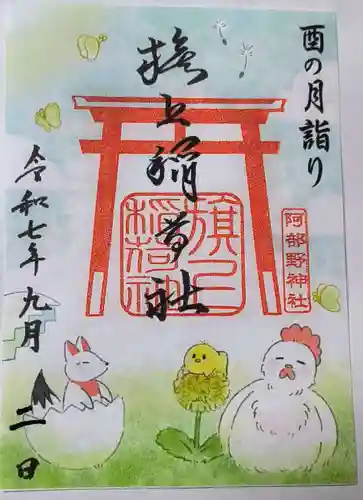 酉の月詣り
旗上稲荷社
阿部野神社
令和七年九月十二日